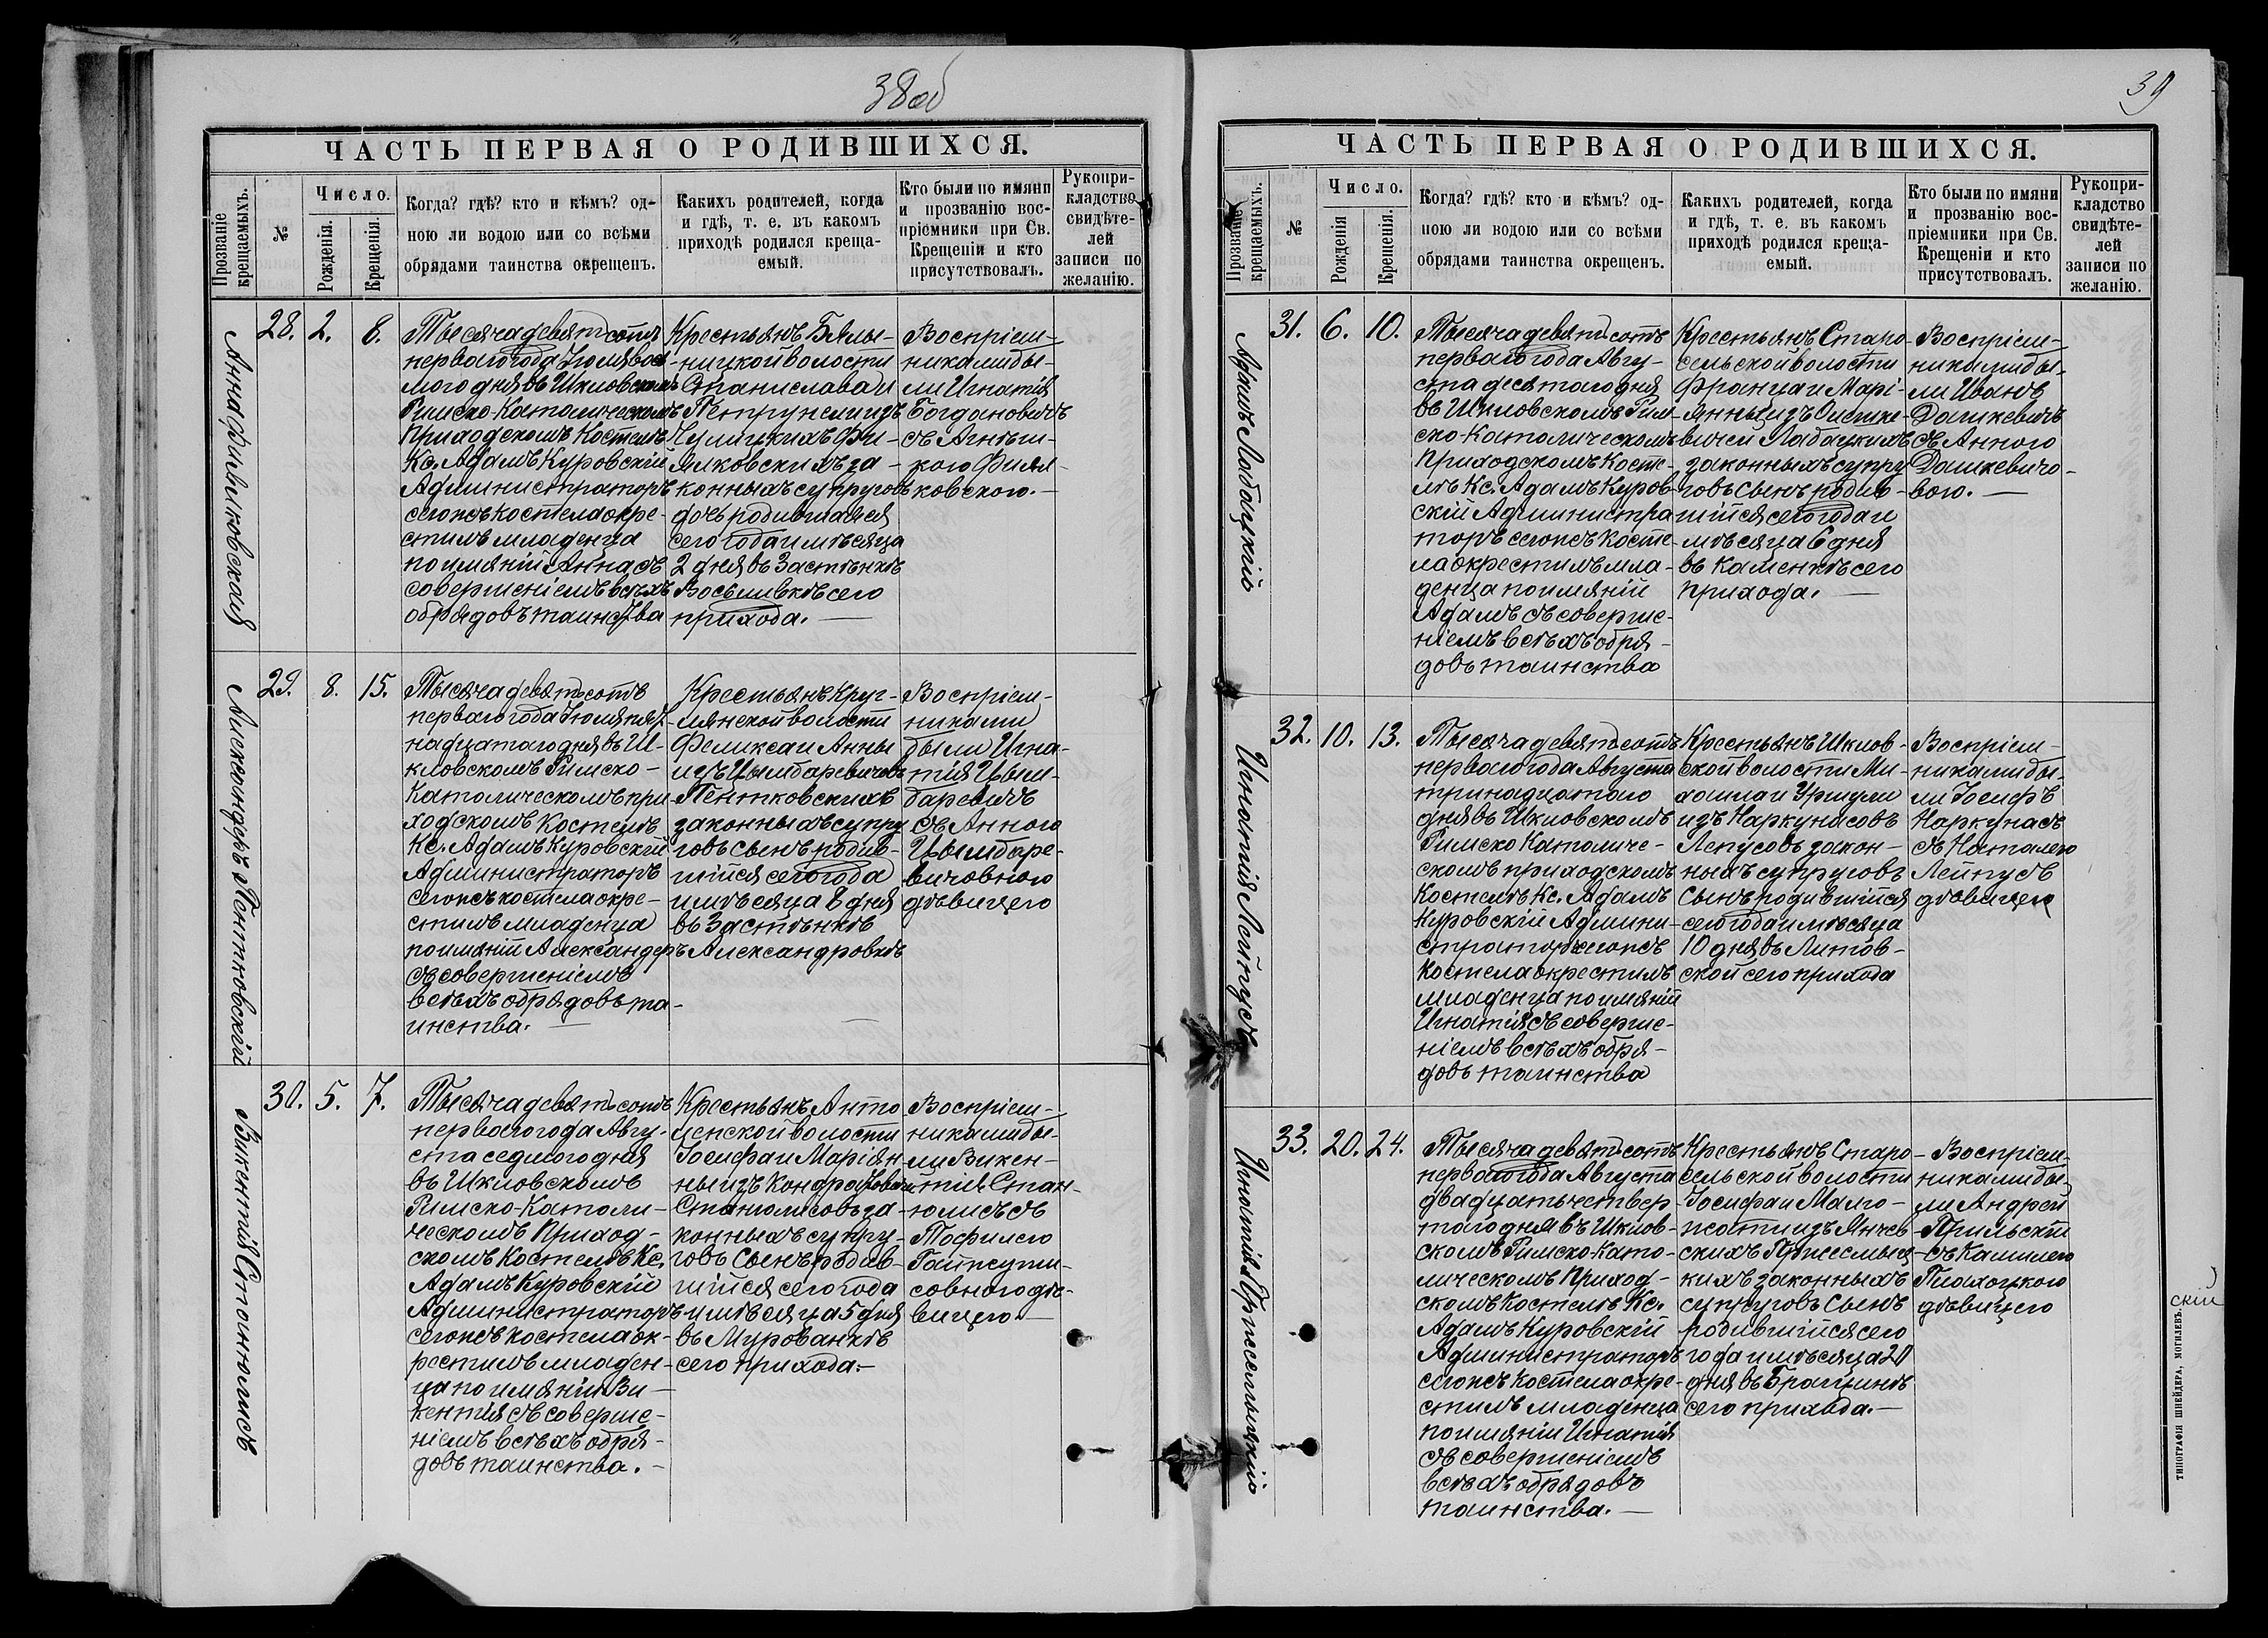 38 об
ЧАСТЬ ПЕРВАЯ О РОДИВШИХСЯ.
Прозваніе крещаемыхъ.
№
Число.
Рожденія.
Крещенія.
Когда? гдѣ? кто и кѣмъ? од-
ною ли водою или со всѣми
обрядами таинства окрещенъ.
Какихъ родителей, когда
и гдѣ, т. е. въ какомъ
приходѣ родился креща-
емый.
Кто были по имяни
и прозванію вос-
пріемники при Св.
Крещеніи и кто
присутствовалъ.
Рукопри-
кладство
свидѣте-
лей
записи по
желанію.
Анна Фильковская
28. 2. 8.
Тысяча девятьсотъ
перваго года Іюля вось-
мого дня въ Шкловскомъ
Римско-Католическомъ
Приходскомъ Костелѣ
Кс. Адамъ Куровскій
Администраторъ
сегожъ костела окре-
стилъ младенца
по имяній Анна съ
совершеніемъ всѣхъ
обрядовъ таинства
Крестьянъ Бялы-
ницкой волости
Станислава и
Петрунели изъ
за-
конныхъ супруговъ
дочь родившаяся
сего года и мѣсяца
2 дня въ Застѣнкѣ
Восьмивкѣ сего
прихода.
Воспріем-
никами бы-
ли Игнатія
Богдановичъ
съ Агнѣш-
кою Филь-
ковскою.
Александеръ Пентковскій
29. 8. 15.
Тысяча девятьсотъ
перваго года Іюля пят-
надцатаго дня въ Ш-
кловскомъ Римско-
Католическомъ при-
ходскомъ Костелѣ
Кс. Адамъ Куровскій
Администраторъ
сегожъ костела окре-
стилъ младенца
по имяній Александеръ
съ совершеніемъ
всѣхъ обрядовъ та-
инства.
Крестьянъ Круг-
лянской волости
Феликса и Анны
изъ Цымбаревичовъ
Пентковскихъ
законныхъ супру-
говъ сынъ родив-
шійся сего года
и мѣсяца 8 дня
въ Застѣнкѣ
Александровкѣ
Воспріем-
никами
были Игна-
тія Цым-
баревичъ
съ Анною
Цымбаре-
вичовною
дѣвицею
Викентія Станюлисъ
30. 5. 7.
Тысяча девятьсотъ
перваго года Авгу-
ста седмого дня
въ Шкловскомъ
Римско-Католи-
ческомъ Приход-
скомъ Костелѣ Кс.
Адамъ Куровскій
Администраторъ
сегожъ костела ок-
рестилъ младен-
ца по имяній Ви-
кентія съ соверше-
ніемъ всѣхъ обря-
довъ таинства.
Крестьянъ Анто-
ценской волости
Іосифа и Маріян-
ны изъ
Станюлисовъ за-
конныхъ супру-
говъ Сынъ родив-
шійся сего года
и мѣсяца 5 дня
въ Мурованкѣ
сего прихода.
Воспріем-
никами бы-
ли Викен-
тій Стан-
юлисъ съ
Тофилею
совною дѣ-
вицею.
39
ЧАСТЬ ПЕРВАЯ О РОДИВШИХСЯ.
Прозваніе крещаемыхъ.
№
Число.
Рожденія
Крещенія.
Когда? гдѣ? кто и кѣмъ? од-
ною ли водою или со всѣми
обрядами таинства окрещенъ.
Какихъ родителей, когда
и гдѣ, т. е. въ какомъ
приходѣ родился креща-
емый.
Кто были по имяни
и прозванію вос-
пріемники при Св.
Крещеніи и кто
присутствовалъ.
Рукопри-
кладство
свидѣте-
лей
записи по
желанію.
Адамъ Лабацкій
31. 6. 10.
Тысяча девятьсотъ
перваго года Авгу-
ста десятаго дня
въ Шкловскомъ Рим-
ско-Католическомъ
Приходскомъ Косте-
лѣ Кс. Адамъ Куров-
скій Администра-
торъ сегожъ Косте-
ла окрестилъ мла-
денца по имяній
Адамъ съ соверше-
ніемъ всѣхъ обря-
довъ таинства
Крестьянъ Старо-
сельской волости
Франца и Марі-
янны изъ
Лабацкихъ
законныхъ супру-
говъ Сынъ родив-
шійся сего года и
мѣсяца 6 дня
въ Каменкѣ сего
прихода.
Воспріем-
никами бы-
ли Иванъ
Дашкевичъ
съ Анною
Дашкевичо-
вою.
Игнатія Лейпусъ
32. 10. 13.
Тысяча девятьсотъ
перваго года Августа
тринадцатаго
дня въ Шкловскомъ
Римско Католиче-
скомъ приходскомъ
Костелѣ Кс. Адамъ
Куровскій Админи-
страторъ сегожъ
Костела окрестилъ
младенца по имяній
Игнатія съ соверше-
ніемъ всѣхъ обря-
довъ таинства
Крестьянъ Шклов-
ской волости Ми-
хаила и Уршули
изъ Наркунасовъ
Лепусовъ закон-
ныхъ супруговъ
Сынъ родившійся
сего года и мѣсяца
10 дня въ Литов-
ской сего прихода
Воспріем-
никами бы-
ли Іосифъ
Наркунасъ
съ Наталею
Лейпусъ
дѣвицею
33. 20. 24.
Тысяча девятьсотъ
перваго года Августа
двадцать четвер-
таго дня въ Шклов-
скомъ Римско-Като-
лическомъ Приход-
скомъ Костелѣ Кс.
Адамъ Куровскій
Администраторъ
сегожъ Костела окре-
стилъ младенца
по имяніи Игнатія
съ совершеніемъ
всѣхъ обрядовъ
таинства.
Крестьянъ Старо-
сельской волости
Іосифа и Малго-
жаты изъ Янчев-
скихъ
кихъ законныхъ
супруговъ Сынъ
родившійся сего
года и мѣсяца 20
дня въ Бращинѣ
сего прихода.
Воспріем-
никами бы-
ли Андрей
съ Камилею
дѣвицею
скій
ТИПОГРАФІЯ ШНЕЙДЕРА, МОГИЛЕВЪ.